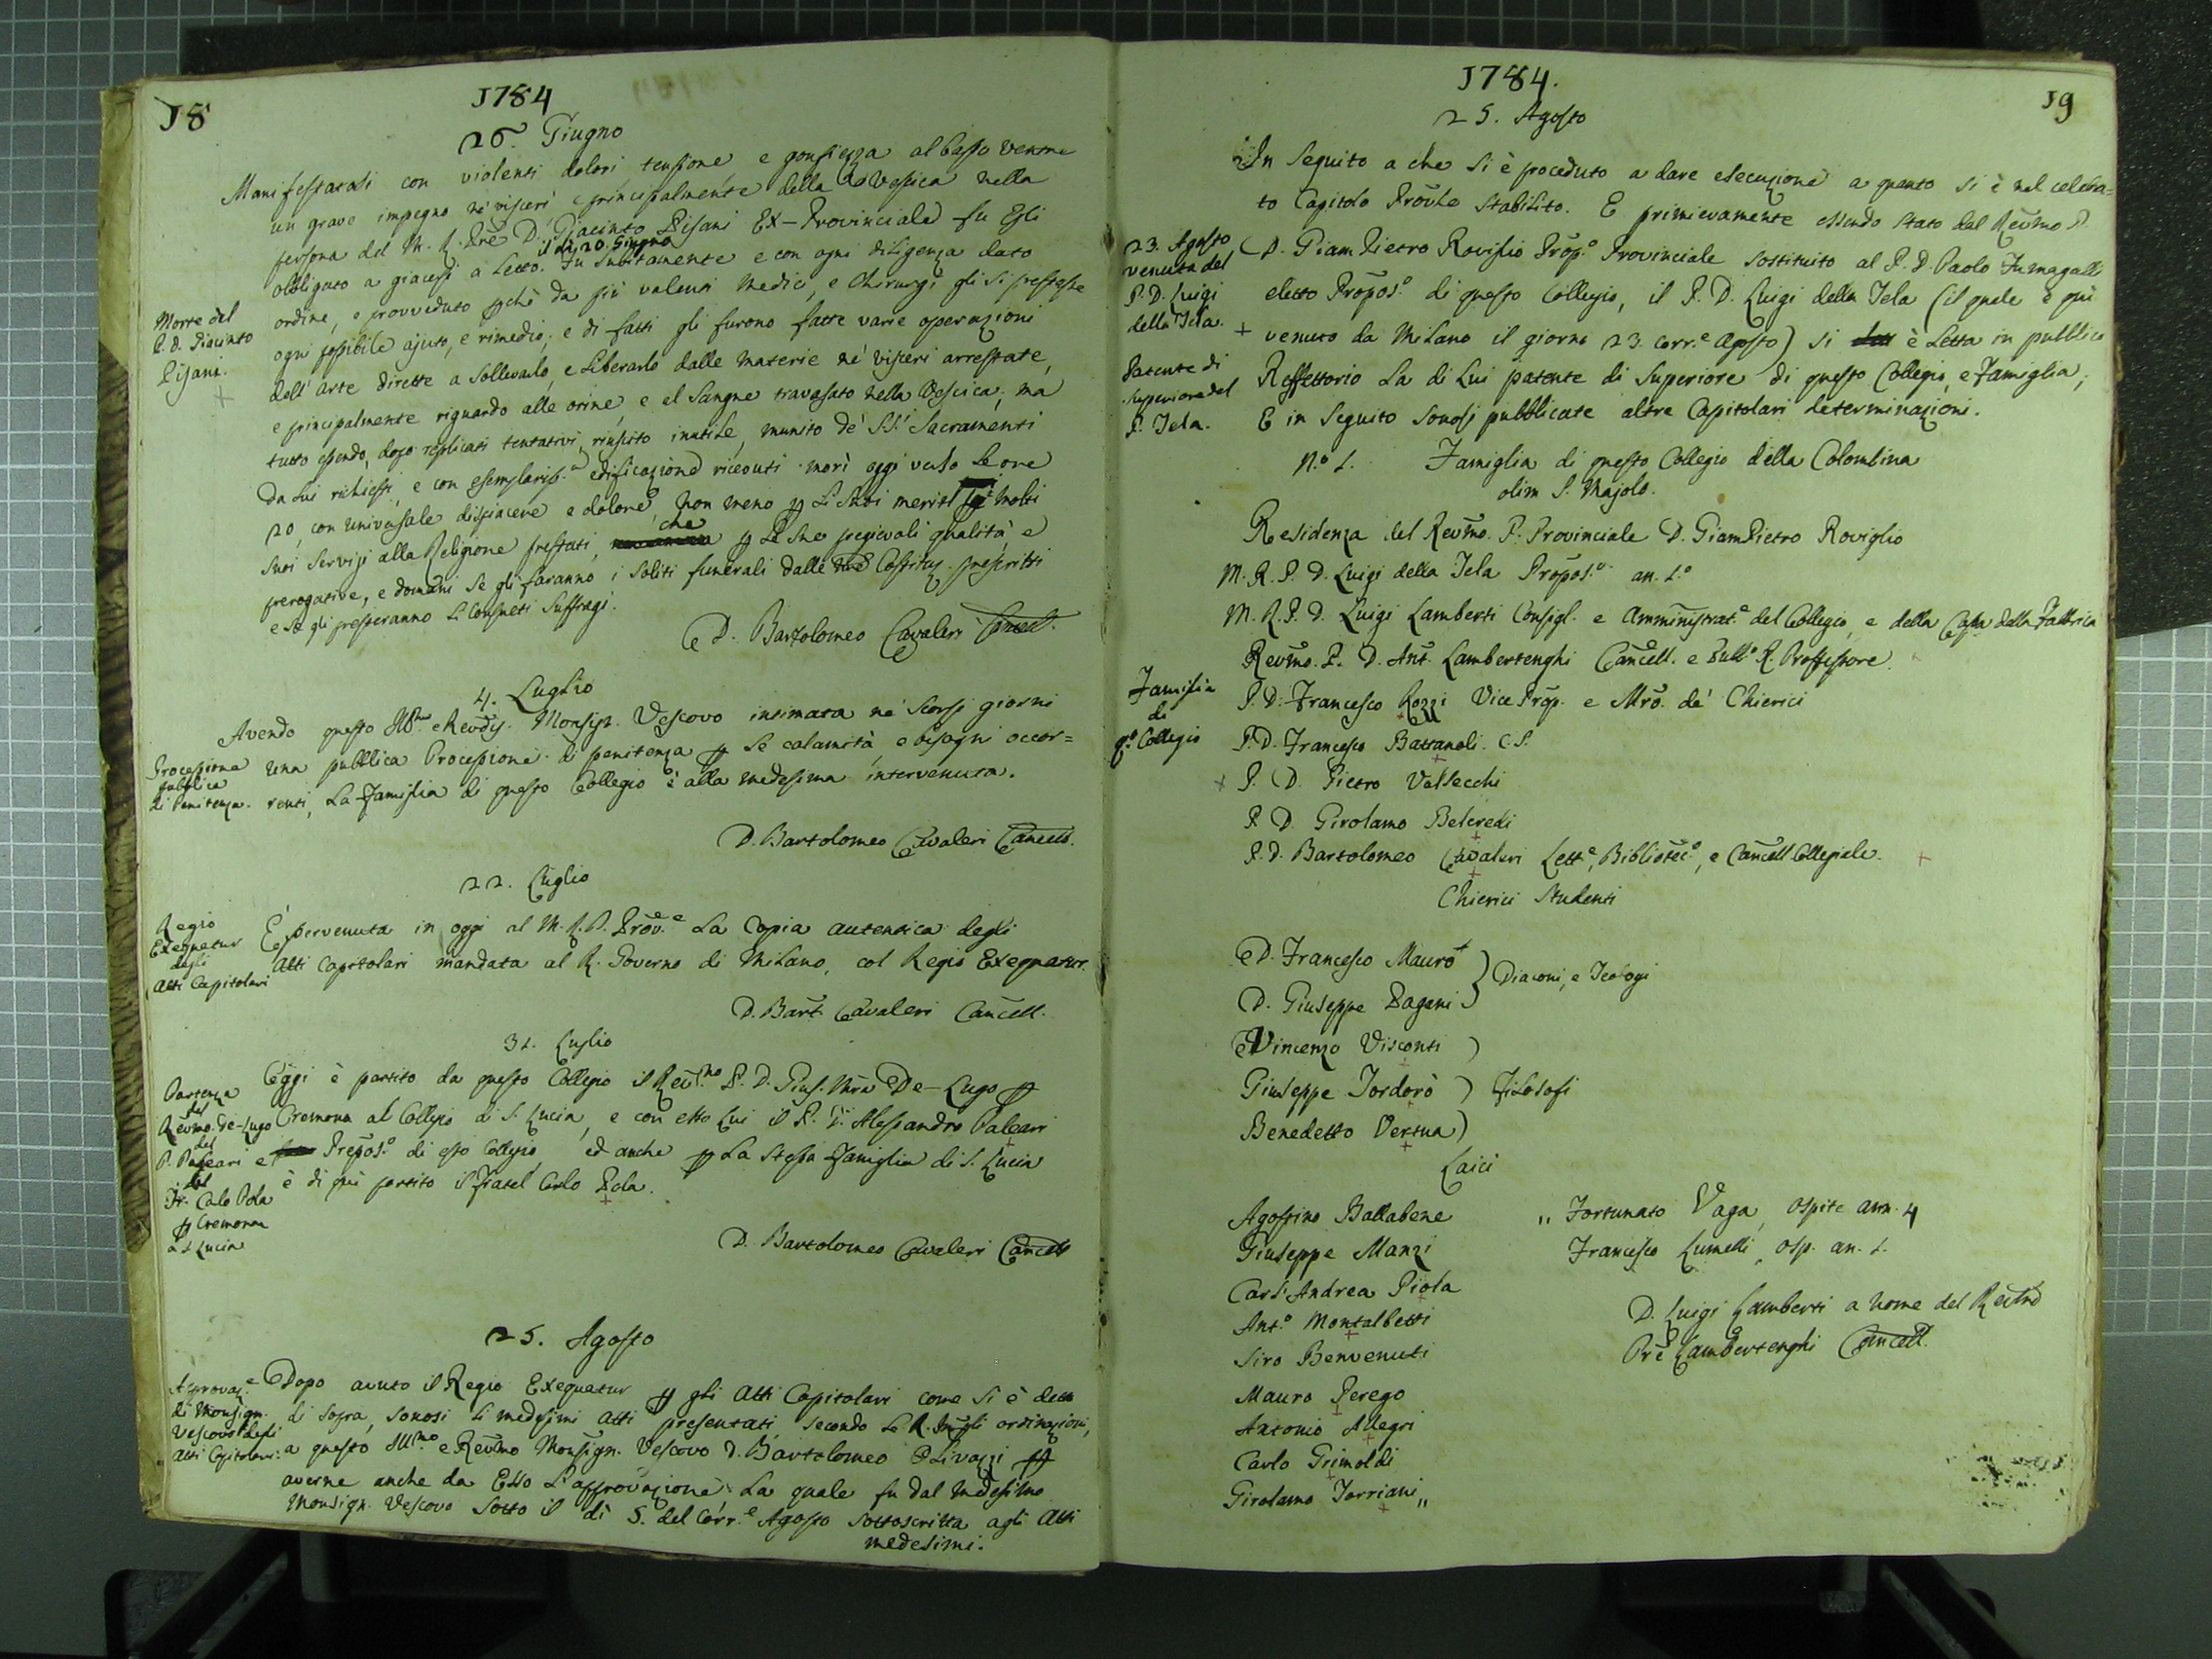 18
1784
26. Giugno
Manifestatasi con violenti dolori, tensione e gonfiezza al basso ventre
un grave impegno ne' visceri principalmente della Vessica nella
persona del M. R. Pre D. Giacinto Pisani Ex-Provinciale fu Egli
il dì 20. Giugno
obbligato a giacersi a Letto. Fu subitamente e con ogni diligenza dato
ordine, e provveduto pchè da più valenti Medici, e Chirurgi gli si prestasse
Morte del
P. D. Giacinto
Pisani.
ogni possibile ajuto, e rimedio; e di fatti gli furono fatte varie operazioni
dell'arte dirette a sollevarlo, e Liberarlo dalle materie ne' visceri arrestate,
e principalmente riguardo alle orine, e al Sangue travasato nella Vescica; ma
tutto essendo, dopo replicati tentativi, riuscito inutile, munito de' SS. Sacramenti
da Lui richiesti, e con esemplariss.a edificazione ricevuti morì oggi verso le ore
20, con universale dispiacere e dolore, non meno p Li Suoi meriti molti
suoi Servizj alla Religione prestati, che p Le Sue pregievoli qualità e
prerogative, e domani se gli faranno i Soliti funerali dalle Costituz. prescritti
e se gli presteranno Li Consueti Suffragi.
D. Bartolomeo Cavaleri Cancell.
4. Luglio
Avendo questo Ill.mo e Revds. Monsign. Vescovo intimata ne' scorsi giorni
Processione
pubblica
di Penitenza.
una pubblica Processione di penitenza p le calamità e bisogni occor=
renti, La Famiglia di questo Collegio è alla medesima intervenuta.
D. Bartolomeo Cavaleri Cancell.
22. Luglio
Regio
Exequatur
degli
Atti Capitolari
È pervenuta in oggi al M. R. P. Prov.e La Copia autentica degli
Atti Capitolari mandata al R. Governo di Milano, col Regio Exequatur.
D. Bart. Cavaleri Cancell.
31. Luglio
Partenza
del
Revmo. De-Lugo
del
P. Paleari e
del
Fr. Carlo Pola
p Cremona
a S. Lucia
Oggi è partito da questo Collegio il Rev.mo P. D. Gius. Mra De-Lugo p
Cremona al Collegio di S. Lucia, e con esso Lui il P. D. Alessandro Paleari
Prepos.o di esso Collegio, ed anche p La stessa Famiglia di S. Lucia
è di quì partito il Fratel Carlo Pola.
D. Bartolomeo Cavaleri Cancell
25. Agosto
Approvaz.e
di Monsign.
Vescovo degli
Atti Capitolari.
Dopo avuto il Regio Exequatur p gli Atti Capitolari come si è detto
di sopra, sonosi Li medesimi Atti presentati, secondo Le R. Impli ordinazioni,
a questo Ill.mo e Revmo Monsign. Vescovo D. Bartolomeo Olivazzi p
averne anche da Esso L'approvazione. La quale fu dal medesimo
Monsign. Vescovo sotto il dì 5. del Corr.e Agosto sottoscritta agli Atti
medesimi.
1784.
19
25. Agosto
In Seguito a che si è proceduto a dare esecuzione a quanto si è nel celebra=
to Capitolo Provle stabilito. E primieramente essendo stato dal Revmo P.
23. Agosto
venuta del
P. D. Luigi
della Tela.
D. Giam Pietro Roviglio Prop.o Provinciale sostituito al P. D. Paolo Fumagalli
eletto Propos.o di questo Collegio, il P. D. Luigi della Tela (il quale è quì
venuto da Milano il giorno 23. corr.e Agosto) si è Letta in pubblico
Patente di
Superiore del
P. Tela.
Reffettorio La di Lui patente di Superiore di questo Collegio, e Famiglia;
E in Seguito sonosi pubblicate altre Capitolari determinazioni.
N.o 1. Famiglia di questo Collegio della Colombina
olim S. Majolo.
Residenza del Revmo. P. Provinciale D. GiamPietro Roviglio
M. R. P. D. Luigi della Tela Propos.o an. 1.o
M. R. P. D. Luigi Lamberti Consigl. e Amministrat.e del Collegio, e della Cassa della Fabbrica
Revmo. P. D. Ant. Lambertenghi Cancell. e Pubb.o R. Professore.
Famiglia
di
q.o Collegio
P. D. Francesco Rozzi Vice Prop. e Mro. de' Chierici
P. D. Francesco Battanoli. C. S.
P. D. Pietro Valsecchi
P. D. Girolamo Belcredi
P. D. Bartolomeo Cavaleri Lett.e, Bibliotec.o, e Cancell. Collegiale.
Chierici Studenti
D. Francesco Mauro
D. Giuseppe Pagani
Diaconi, e Teologi
Vincenzo Visconti )
Giuseppe Tordorò ) Filosofi
Benedetto Vertua )
Laici
Agostino Ballabene
Giuseppe Manzi
Carl'Andrea Piola
Ant.o Montalbetti
Siro Benvenuti
Mauro Perego
Antonio Allegri
Carlo Grimoldi
Girolamo Torriani „
„ Fortunato Vaga, ospite ann. 4
Francesco Lumelli, osp. an. 1.
D. Luigi Lamberti a nome del Revmo
Pre Lambertenghi Cancell.